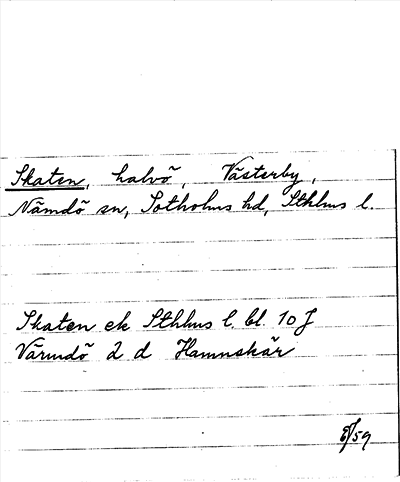 Skaten, halvö, Västerby,
Nämdö sn, Sotholms hd, Sthlms l.
Skaten ek Sthlms l. bl. 10 J
Värmdö 2 d Hamnskär
/59